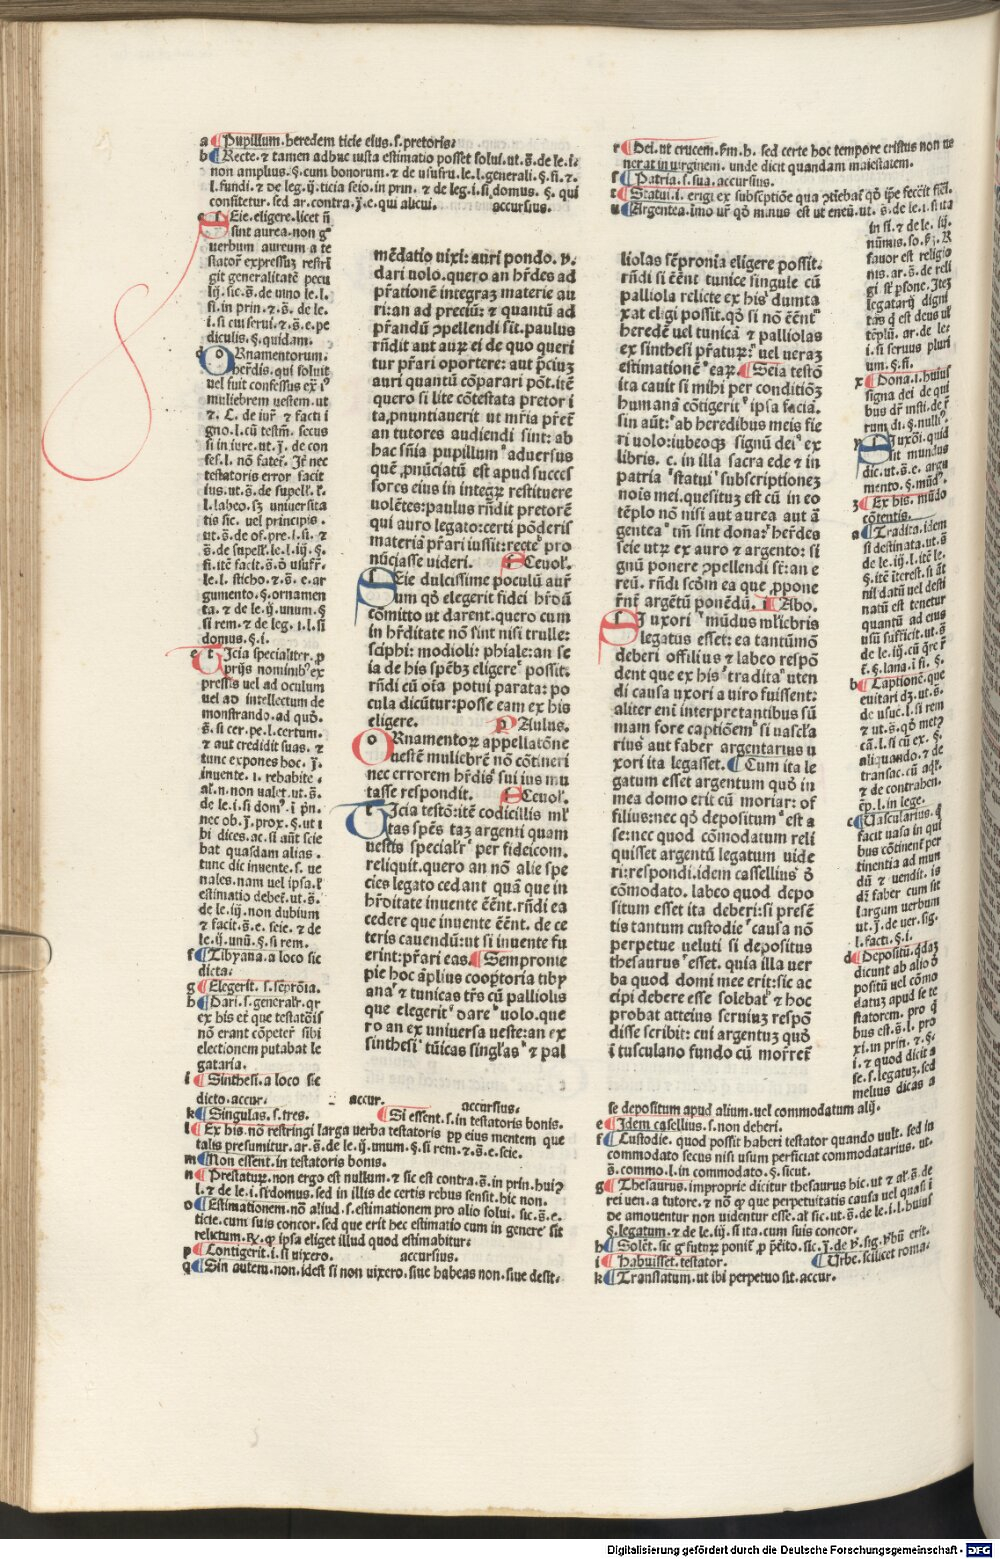 a Pupillum. heredem ticie eius. s. pretoris.
b Recte. ⁊ tamen adhuc iusta estimatio posset solui. ut. s̄. de le. i.
non amplius. §. cum bonorum. ⁊ de usufru. le. l. generali. §. fi. ⁊
l. fundi. ⁊ de leg. ij. ticia seio. in prin. ⁊ de leg. i. si domus. §. qui
confitetur. sed ar. contra. j̄. e. qui alicui. accursius.
c SEie. eligere. licet n̄
sint aurea. non gͣ
uerbum aureum a te
statore expressuȝ restri
git generalitatē pecu
lij. sic. s̄. de uino le. l.
si. in prin. ⁊ s̄. de le.
i. si cui serui. ⁊. s̄. e. pe
diculis. §. quidam.
d ORnamentorum.
herdis. qui soluit
uel fuit confessus ex
muliebrem uestem. ut
⁊. C. de iur̄ ⁊ facti i
gno. l. cū testm̄. secus
si in iure. ut. j̄. de con
fes. l. nō fatet̄. Jt̄ nec
testatoris error facit
ius. ut. s̄. de supell̄.
l. labeo. sȝ uniuersita
tis sic. uel principis.
ut. s̄. de of. pre. l. si. ⁊
s̄. de supell̄. le. l. iij. §.
fi. itē facit. s̄. ō usufr̄.
le. l. sticho. ⁊ s̄. e. ar
gumento. §. ornamen
ta. ⁊ de le. ij. unum. §
si rem. ⁊ de leg. i. l. si
domus. §. i.
e TIcia specialiter. ꝓ
prijs nominib; ex
pressis uel ad oculum
uel ad intellectum de
monstrando. ad quō.
s̄. si cer. pe. l. certum.
⁊ aut credidit suas. ⁊
tunc expones hoc. j̄.
inuente. i. rehabite.
al. n. non ualet. ut. s̄.
de le. i. si dom;. ī pn̄.
nec ob. j̄. prox. §. ut t
bi dices. ac. si aūt scie
bat quasdam alias.
tunc dic inuente. s. ue
nales. nam uel ipsa.
estimatio debet̄. ut. s̄.
de le. iij. non dubium
⁊ facit. s̄. e. seie. ⁊ de
le. ij. unū. §. si rem.
f Tibyana. a loco sic
dicta.
g Elegerit. s. sēprōia.
h Dari. s. generalr̄. qr
ex his et̄ que testatōis
nō erant cōpetēr sibi
electionem putabat le
gataria.
i Sinthesi. a loco sic
dicto. accur. accur. accursius.
k Singulas. s. tres. Si essent. s. in testatoris bonis.
l Ex his. nō restringi larga uerba testatoris pp eius mentem que
talis presumitur. ar. s̄. de le. ij. unum. §. si rem. ⁊ s̄. e. seie.
m Non essent. in testatoris bonis.
n Prestatuꝝ. non ergo est nullum. ⁊ sic est contra. s̄. in prin. hui;
l. ⁊ de le. i. si domus. sed in illis de certis rebus sensit. hic non.
o Estimationem. nō aliud. s. estimationem pro alio solui. sic. s̄. e.
ticie. cum suis concor. sed que erit hec estimatio cum in genere sit
relictum. ꝶ. ꝙ ipsa eliget illud quod estimabitur.
p Contigerit. i. si uixero. accursius.
q Sin autem. non. idest si non uixero. siue habeas non. siue desit.
mēdatio uixi: auri pondo. v.
dari uolo. quero an hr̄des ad
pr̄ationē integraȝ materie au
ri: an ad preciū: ⁊ quantū ad
pr̄andū ꝯpellendi sit. paulus
rn̄dit aut auꝝ ei de quo queri
tur pr̄ari oportere: aut p̄ciuȝ
auri quantū cōparari pōt. itē
quero si lite cōtestata pretor i
ta, pnuntiauerit ut mr̄ia p̄ret̄
an tutores audiendi sint: ab
hac sn̄ia pupillum ͣ aduersus
quē ꝓnūciatū est apud succes
sores eius in integꝝ restituere
uolētes: paulus rn̄dit pretorē
qui auro legato: certi pōderis
materiā pr̄ari iussit: recte ͣ pro
nūciasse uideri. SCeuol̄.
SEie dulcissime poculū aur̄
um qō elegerit fidei hr̄dū
cōmitto ut darent. quero cum
in hr̄ditate nō sint nisi trulle:
sciphi: modioli: phiale: an se
ia de his spēb; eligere possit.
rn̄di cū oīa potui parata: po
cula dicūtur: posse eam ex his
eligere. PAulus.
ORnamentoꝝ appellatōne
uestē muliebrē nō cōtineri
nec errorem hr̄dis sui ius mu
tasse respondit. SCeuol̄.
TIcia testō: itē codicillis ml̄
tas spēs taȝ argenti quam
uestis specialr̄ per fideicom.
reliquit. quero an nō alie spe
cies legato cedant quā que in
hr̄ditate inuente eēnt. rn̄di ea
cedere que inuente eēnt. de ce
teris cauendū: ut si inuente fu
erint: pr̄ari eas. Sempronie
pie hoc āplius cooptoria tiby
ana ⁊ tunicas tr̄s cū palliolis
que elegerit dare uolo. que
ro an ex uniuersa ueste: an ex
sinthesi tūicas singl̄as ⁊ pal
liolas sēpronia eligere possit.
rn̄di si eēnt tunice singule cū
palliola relicte ex his dunta
xat eligi possit. qō si nō eēnt
heredē uel tunicā ⁊ palliolas
ex sinthesi pr̄atuꝝ: uel ueraȝ
estimationē eaꝝ. Seia testō
ita cauit si mihi per conditiōȝ
humanā cōtigerit ipsa faciā.
sin aūt: ab heredibus meis fie
ri uolo: iubeoqȝ signū dei ex
libris. c. in illa sacra ede ⁊ in
patria statui subscriptioneȝ
nois mei. quesituȝ est cū in eo
tēplo nō nisi aut aurea aut ā
gentea tm̄ sint dona: her̄des
seie utꝝ ex auro ⁊ argento: si
gnū ponere ꝯpellendi sīt: an e
reū. rn̄di scōm ea que ꝓpone
rn̄t argētū ponēdū. LAbo.
SI uxori mūdus ml̄iebris
legatus esset: ea tantūmō
deberi offilius ⁊ labeo respō
dent que ex his tradita uten
di causa uxori a uiro fuissent:
aliter eni interpretantibus sū
mam fore captiōem si uascla
rius aut faber argentarius u
xori ita legasset. Cum ita le
gatum esset argentum quō in
mea domo erit cū moriar: of
filius: nec qō depositum est a
se: nec quod cōmodatum reli
quisset argentū legatum uide
ri: respondi. idem cassellius ō
cōmodato. labeo quod depo
situm esset ita deberi: si presē
tis tantum custodie causa nō
perpetue ueluti si depositus
thesaurus esset. quia illa uer
ba quod domi mee erit: sic ac
cipi debere esse solebat ⁊ hoc
probat atteius seruiuȝ respō
disse scribit: cui argentuȝ quō
ī tusculano fundo cū morret̄
r Dei. ut crucem. s̄m. h. sed certe hoc tempore cristus non ue
nerat in uirginem. unde dicit quandam maiestatem.
s Patria. s. sua. accursius.
t Statui. i. erigi ex subscēptiōe qua ꝯtiebat̄ qō ip̄e fecēit fieri.
u Argentea. imo ur̄ qō minus est ut eneū. ut. s̄. de le. i. si ita
in fi. ⁊ de le. iij.
nūmis. so. s̄; R
fauor est religio
nis. ar. s̄. de reli
gi st̄ p̄sone. Iteȝ
legatarij digni
tas q̄ est deus ul̄
tēplū. ar. de le.
i. si seruus pluri
um. §. fi.
x Dona. i. huius
signa dei de qui
bus dr̄ insti. de r̄
rum di. §. nulli;.
y SI uxōi. quid
sit mundus
dic. ut. s̄. e. argu
mento. §. mūd;.
z Ex his. mūdo
cōtentis.
a Tradita. idem
si destinata. ut. s̄
de le. iij. l. itē le.
§. itē iterest. si āt
nil datū uel desti
natū est tenetur
quantū ad eius
usū sufficit. ut. s̄
de le. iij. cū qr̄e r̄
t̄. §. lana. ī fi. §.
b Captionē. que
euitari dȝ. ut. s̄.
de usuc. l. si rem
⁊. s̄. qō met;
cā. l. si cū ex. §.
aliquando. ⁊ de
transac. cū aq̄l̄.
⁊ de contrahen.
ēp. l. in lege.
c Vascularius. q̄
facit uasa in qui
bus cōtinent̄ per
tinentia ad mun
dū ⁊ uendit. is
dr̄ faber cum sit
largum uerbum
ut. j̄. de uer. sig.
l. facti. §. i.
d Depositū. qdaȝ
dicunt ab alio ō
positū uel cōmo
datuȝ apud se te
statorem. pro q̄
bus est. s̄. l. pro
xi. in prin. ⁊. §.
i. ⁊ quod dicit a
se. s. legatuȝ. sed
melius dicas a
se depositum apud alium. uel commodatum alij.
e Idem casellius. s. non deberi.
f Custodie. quod possit haberi testator quando uult. sed in
commodato secus nisi usum perficiat commodatarius. ut.
s̄. commo. l. in commodato. §. sicut.
g Thesaurus. improprie dicitur thesaurus hic. ut ⁊ al̄. s̄. de
rei uen. a tutore. ⁊ nō ꝙ que perpetuitatis causa uel quasi i
de amouentur non uidentur esse. al̄ sic. ut. s̄. de le. i. l. huius
§. legatum. ⁊ de le. iij. si ita. cum suis concor.
h Solet̄. sic gͣ futuꝝ ponit̄ ꝓ p̄terito. sic. j̄. de v̄. sig. v̄bū erit.
i Habuisset. testator. Urbe. scilicet roma.
k Translatum. ut ibi perpetuo sit. accur.
Digitalisierung gefördert durch die Deutsche Forschungsgemeinschaft - DFG